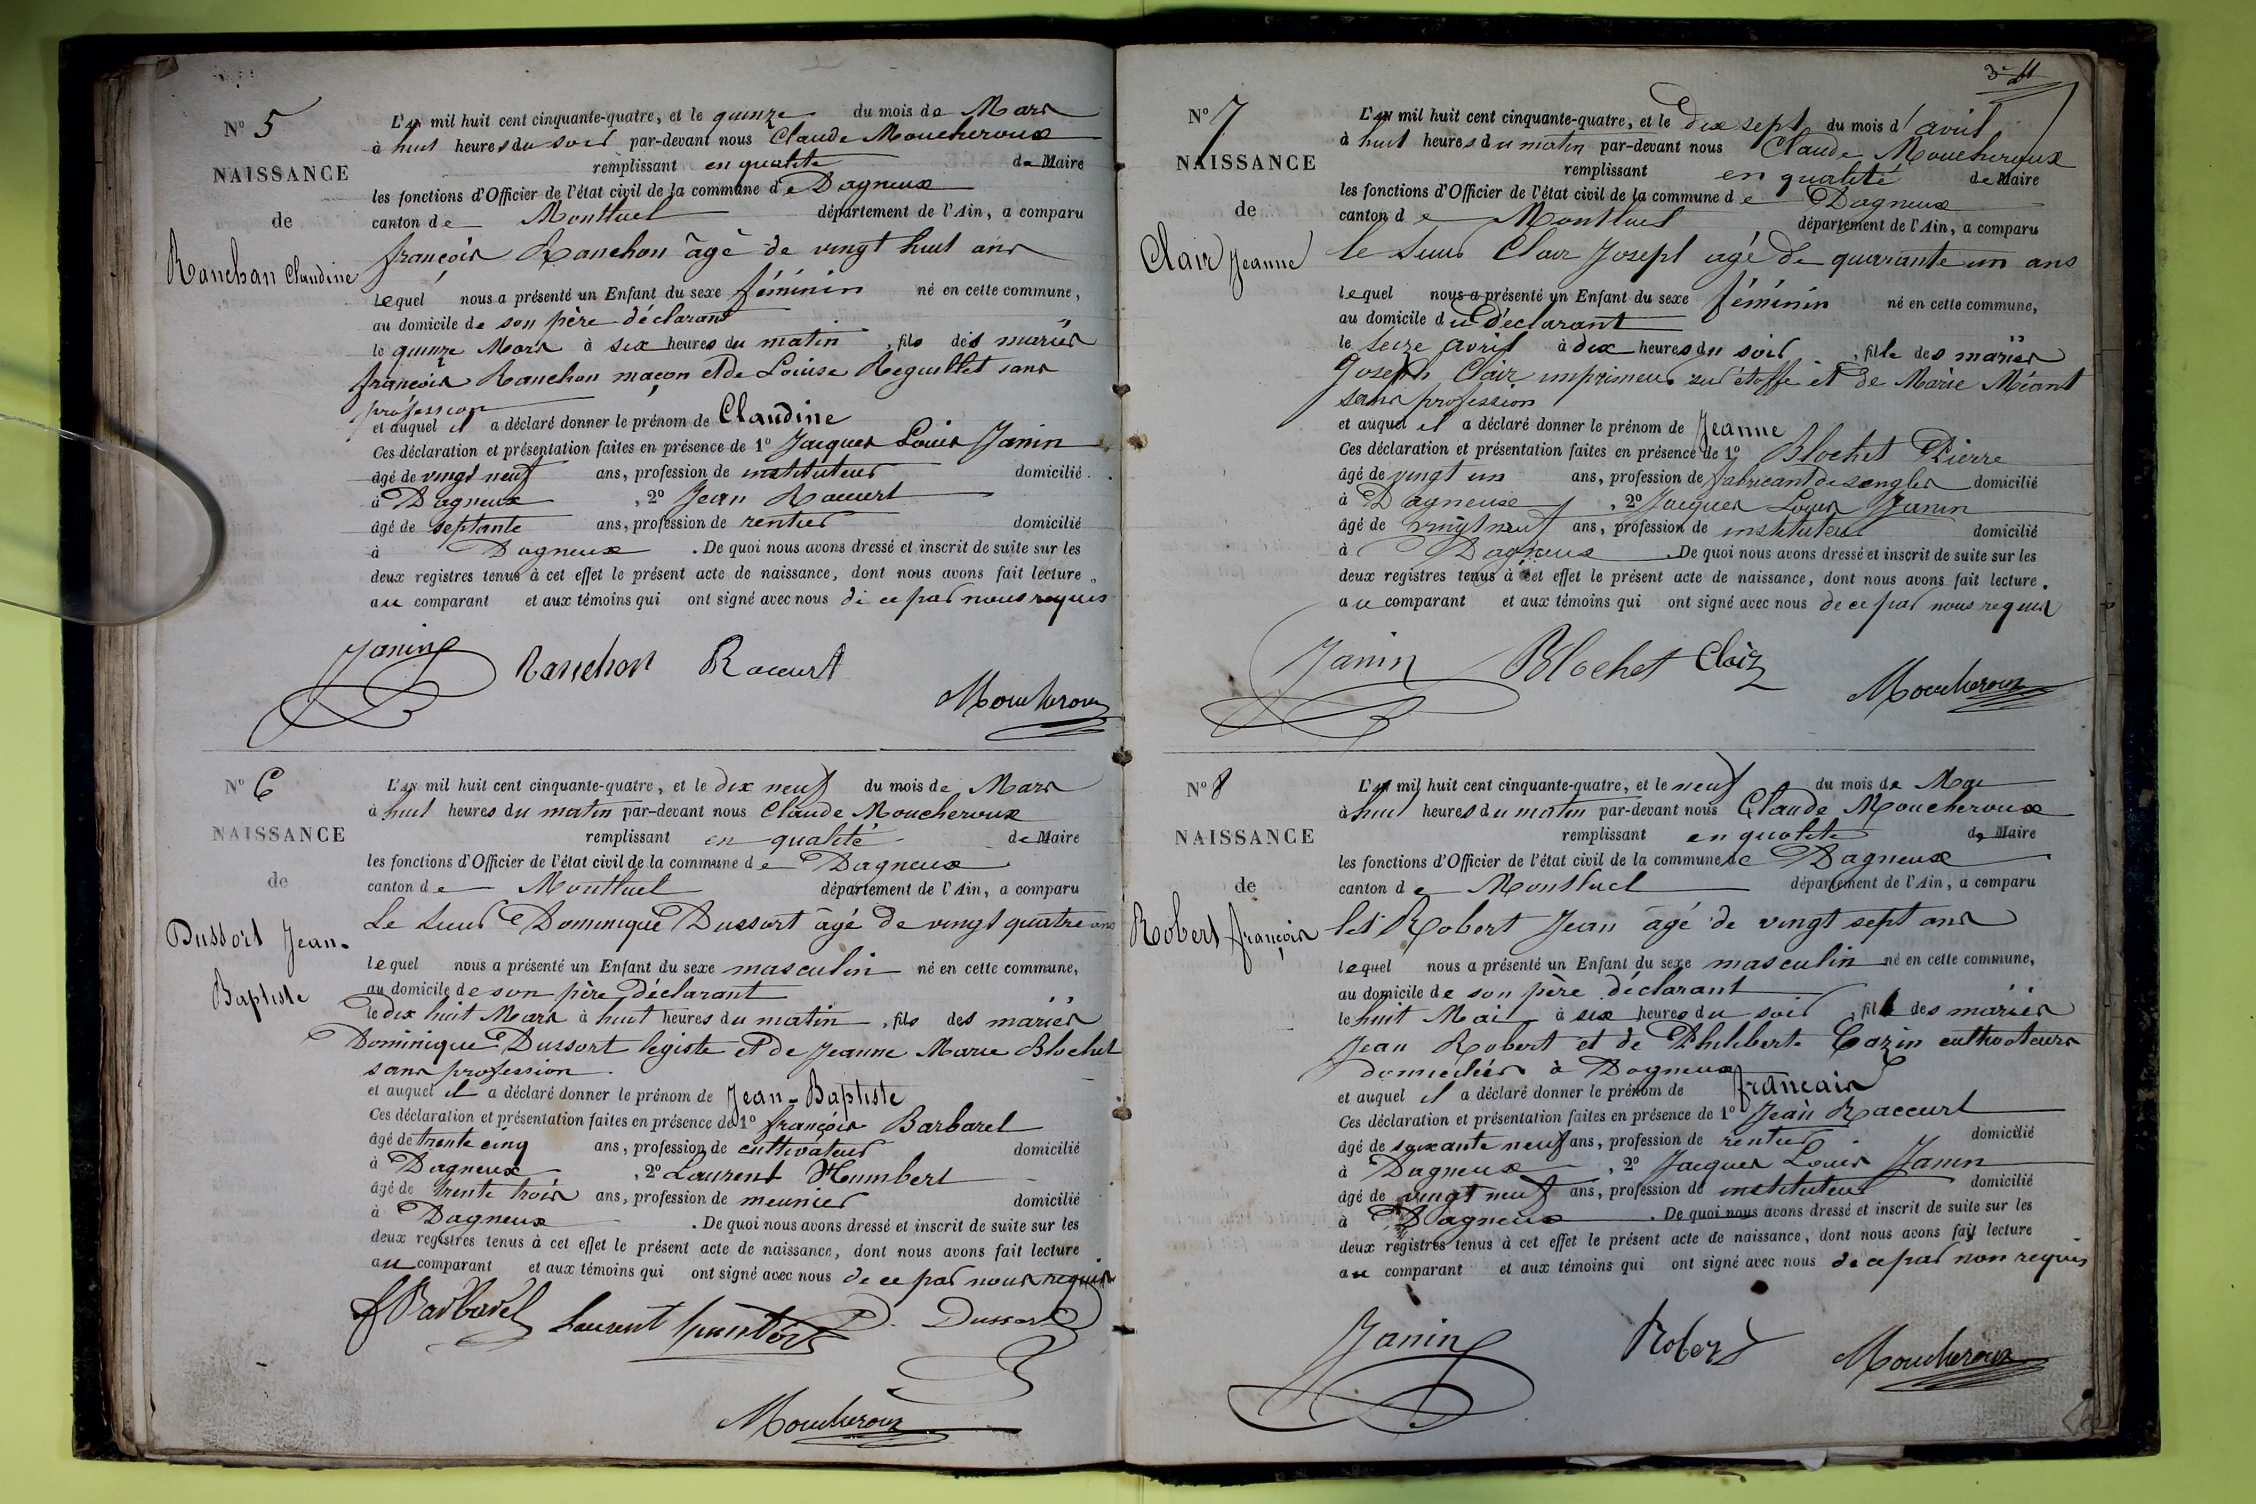 N° 5
NAISSANCE
de
Ranchon Claudine
L'AN mil huit cent cinquante-quatre, et le quinze du mois de Mars
à huit heures du soir par-devant nous Claude Moucheroux
remplissant en qualité de Maire
les fonctions d'Officier de l'état civil de la commune de Dagneux
canton de Montluel département de l'Ain, a comparu
françois Ranchon âgé de vingt huit ans
lequel nous a présenté un Enfant du sexe féminin né en cette commune,
au domicile de son père déclarant
le quinze Mars à six heures du matin, fils des mariés
françois Ranchon maçon et de Louise Reguillet sans
profession
et auquel il a déclaré donner le prénom de Claudine
Ces déclaration et présentation faites en présence de 1° Jacques Louis Janin
âgé de vingt neuf ans, profession de instituteur domicilié
à Dagneux, 2° Jean Raccurt
âgé de septante ans, profession de rentier domicilié
à Dagneux. De quoi nous avons dressé et inscrit de suite sur les
deux registres tenus à cet effet le présent acte de naissance, dont nous avons fait lecture
au comparant et aux témoins qui ont signé avec nous de ce par nous requis
Janin Ranchon Raccurt
Moucheroux
N° 6
NAISSANCE
de
Dussort Jean-
Baptiste
L'AN mil huit cent cinquante-quatre, et le dix neuf du mois de Mars
à huit heures du matin par-devant nous Claude Moucheroux
remplissant en qualité de Maire
les fonctions d'Officier de l'état civil de la commune de Dagneux
canton de Montluel département de l'Ain, a comparu
Le sieur Dominique Dussort âgé de vingt quatre ans
lequel nous a présenté un Enfant du sexe masculin né en cette commune,
au domicile de son père déclarant
le dix huit Mars à huit heures du matin, fils des mariés
Dominique Dussort legiste et de Jeanne Marie Blochet
sans profession.
et auquel il a déclaré donner le prénom de Jean-Baptiste
Ces déclaration et présentation faites en présence de 1° françois Barbarel
âgé de trente cinq ans, profession de cultivateur domicilié
à Dagneux, 2° Laurent Humbert
âgé de trente trois ans, profession de meunier domicilié
à Dagneux. De quoi nous avons dressé et inscrit de suite sur les
deux registres tenus à cet effet le présent acte de naissance, dont nous avons fait lecture
au comparant et aux témoins qui ont signé avec nous de ce par nous requis
f Barbarel Laurent humbert D. Dussort
Moucheroux
N° 7
NAISSANCE
de
Clair Jeanne
L'AN mil huit cent cinquante-quatre, et le Dix sept du mois d'avril
à huit heures du matin par-devant nous Claude Moucheroux
remplissant en qualité de Maire
les fonctions d'Officier de l'état civil de la commune de Dagneux
canton de Montluel département de l'Ain, a comparu
le sieur Clair Joseph agé de quarante un ans
lequel nous a présenté un Enfant du sexe féminin né en cette commune,
au domicile du déclarant
le seize avril à dix heures du soir, fille des mariés
Joseph Clair imprimeur sur étoffe et de Marie Méant
sans profession
et auquel il a déclaré donner le prénom de Jeanne
Ces déclaration et présentation faites en présence de 1° Blochet Pierre
âgé de vingt un ans, profession de fabricant de sangles domicilié
à Dagneux, 2° Jacques Louis Janin
âgé de vingt neuf ans, profession de instituteur domicilié
à Dagneux. De quoi nous avons dressé et inscrit de suite sur les
deux registres tenus à cet effet le présent acte de naissance, dont nous avons fait lecture.
au comparant et aux témoins qui ont signé avec nous de ce par nous requis
Janin Blochet Clair
Moucheroux
N° 8
NAISSANCE
de
Robert françois
L'AN mil huit cent cinquante-quatre, et le neuf du mois de Mai
à huit heures du matin par-devant nous Claude Moucheroux
remplissant en qualité de Maire
les fonctions d'Officier de l'état civil de la commune de Dagneux
canton de Montluel département de l'Ain, a comparu
le sr Robert Jean âgé de vingt sept ans
lequel nous a présenté un Enfant du sexe masculin né en cette commune,
au domicile de son père déclarant
le huit Mai à six heures du soir, fils des mariés
Jean Robert et de Philiberte Cazin cultivateurs
domiciliés à Dagneux
et auquel il a déclaré donner le prénom de françois
Ces déclaration et présentation faites en présence de 1° Jean Raccurt
âgé de soixante neuf ans, profession de rentier domicilié
à Dagneux, 2° Jacques Louis Janin
âgé de vingt neuf ans, profession de instituteur domicilié
à Dagneux. De quoi nous avons dressé et inscrit de suite sur les
deux registres tenus à cet effet le présent acte de naissance, dont nous avons fait lecture
au comparant et aux témoins qui ont signé avec nous de ce par nous requis
Janin Robert Moucheroux